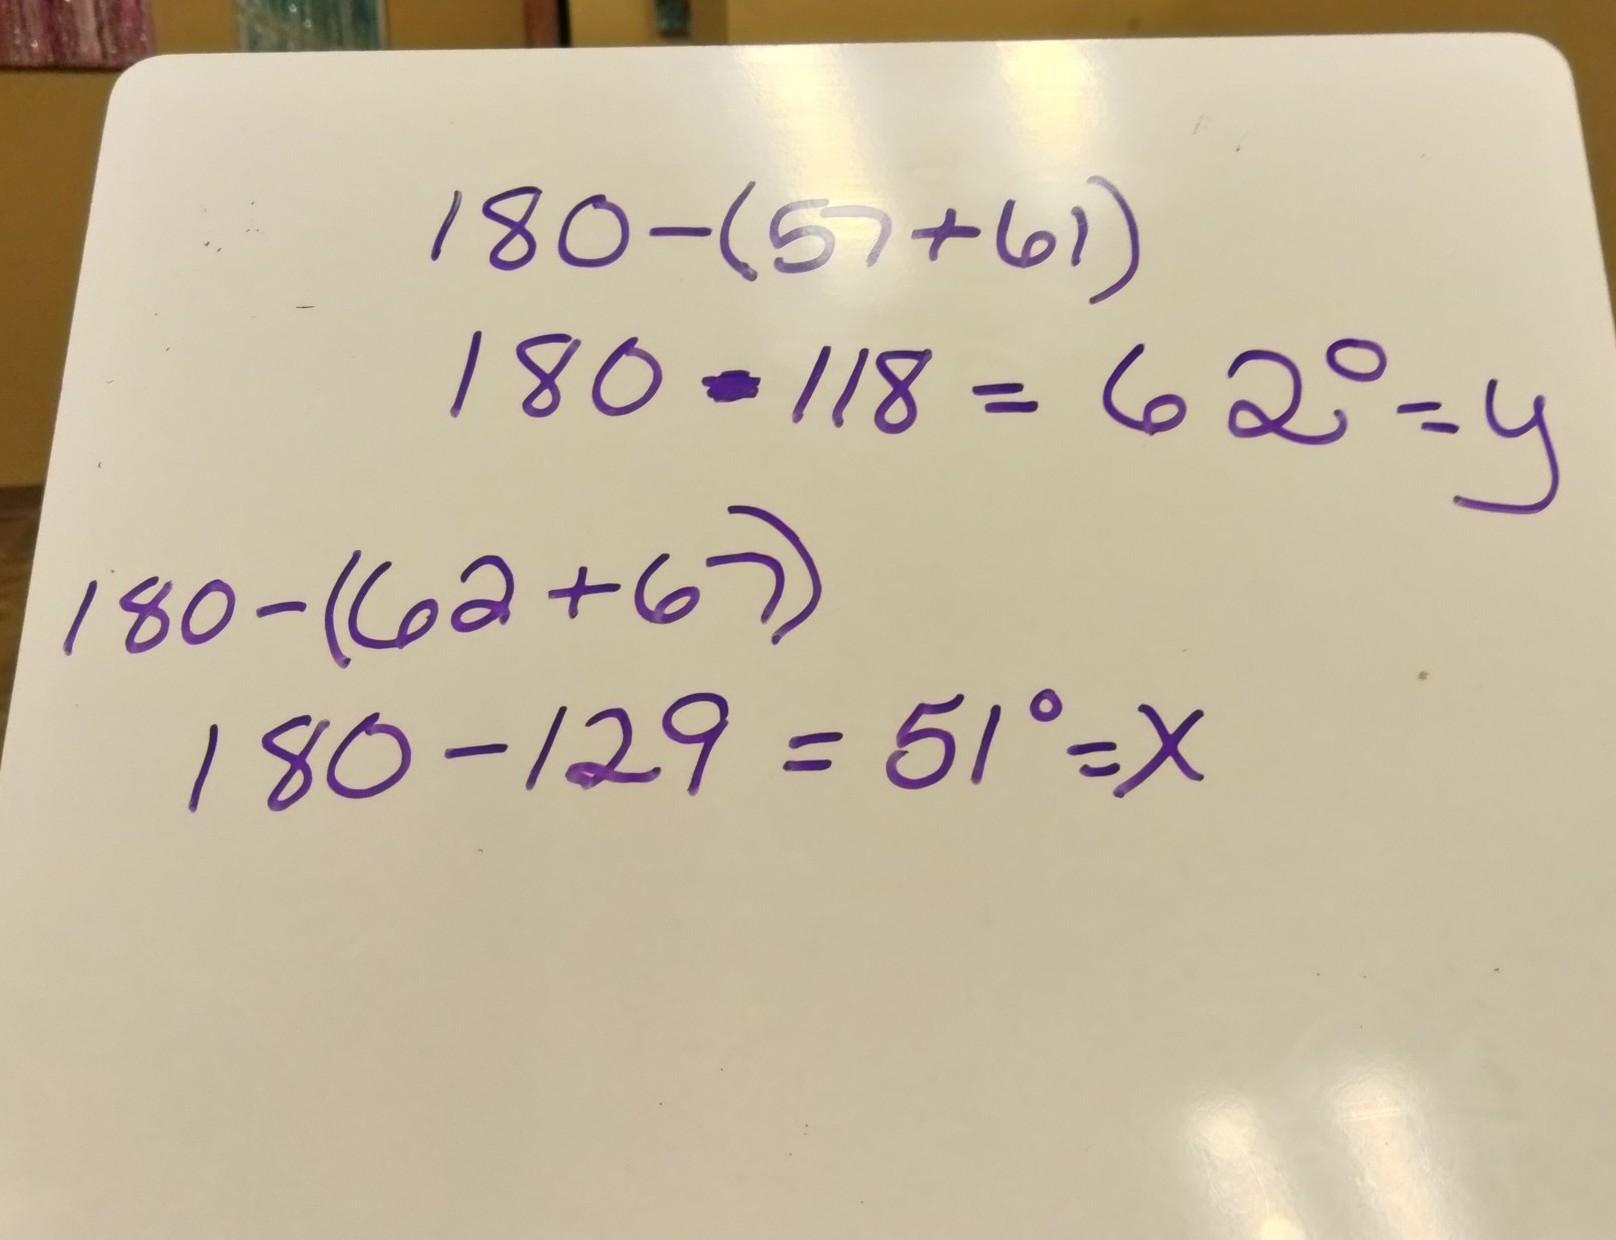 180-(57+61)
180-118 = 62°=y
180-(62+67)
180-129 = 51°=x